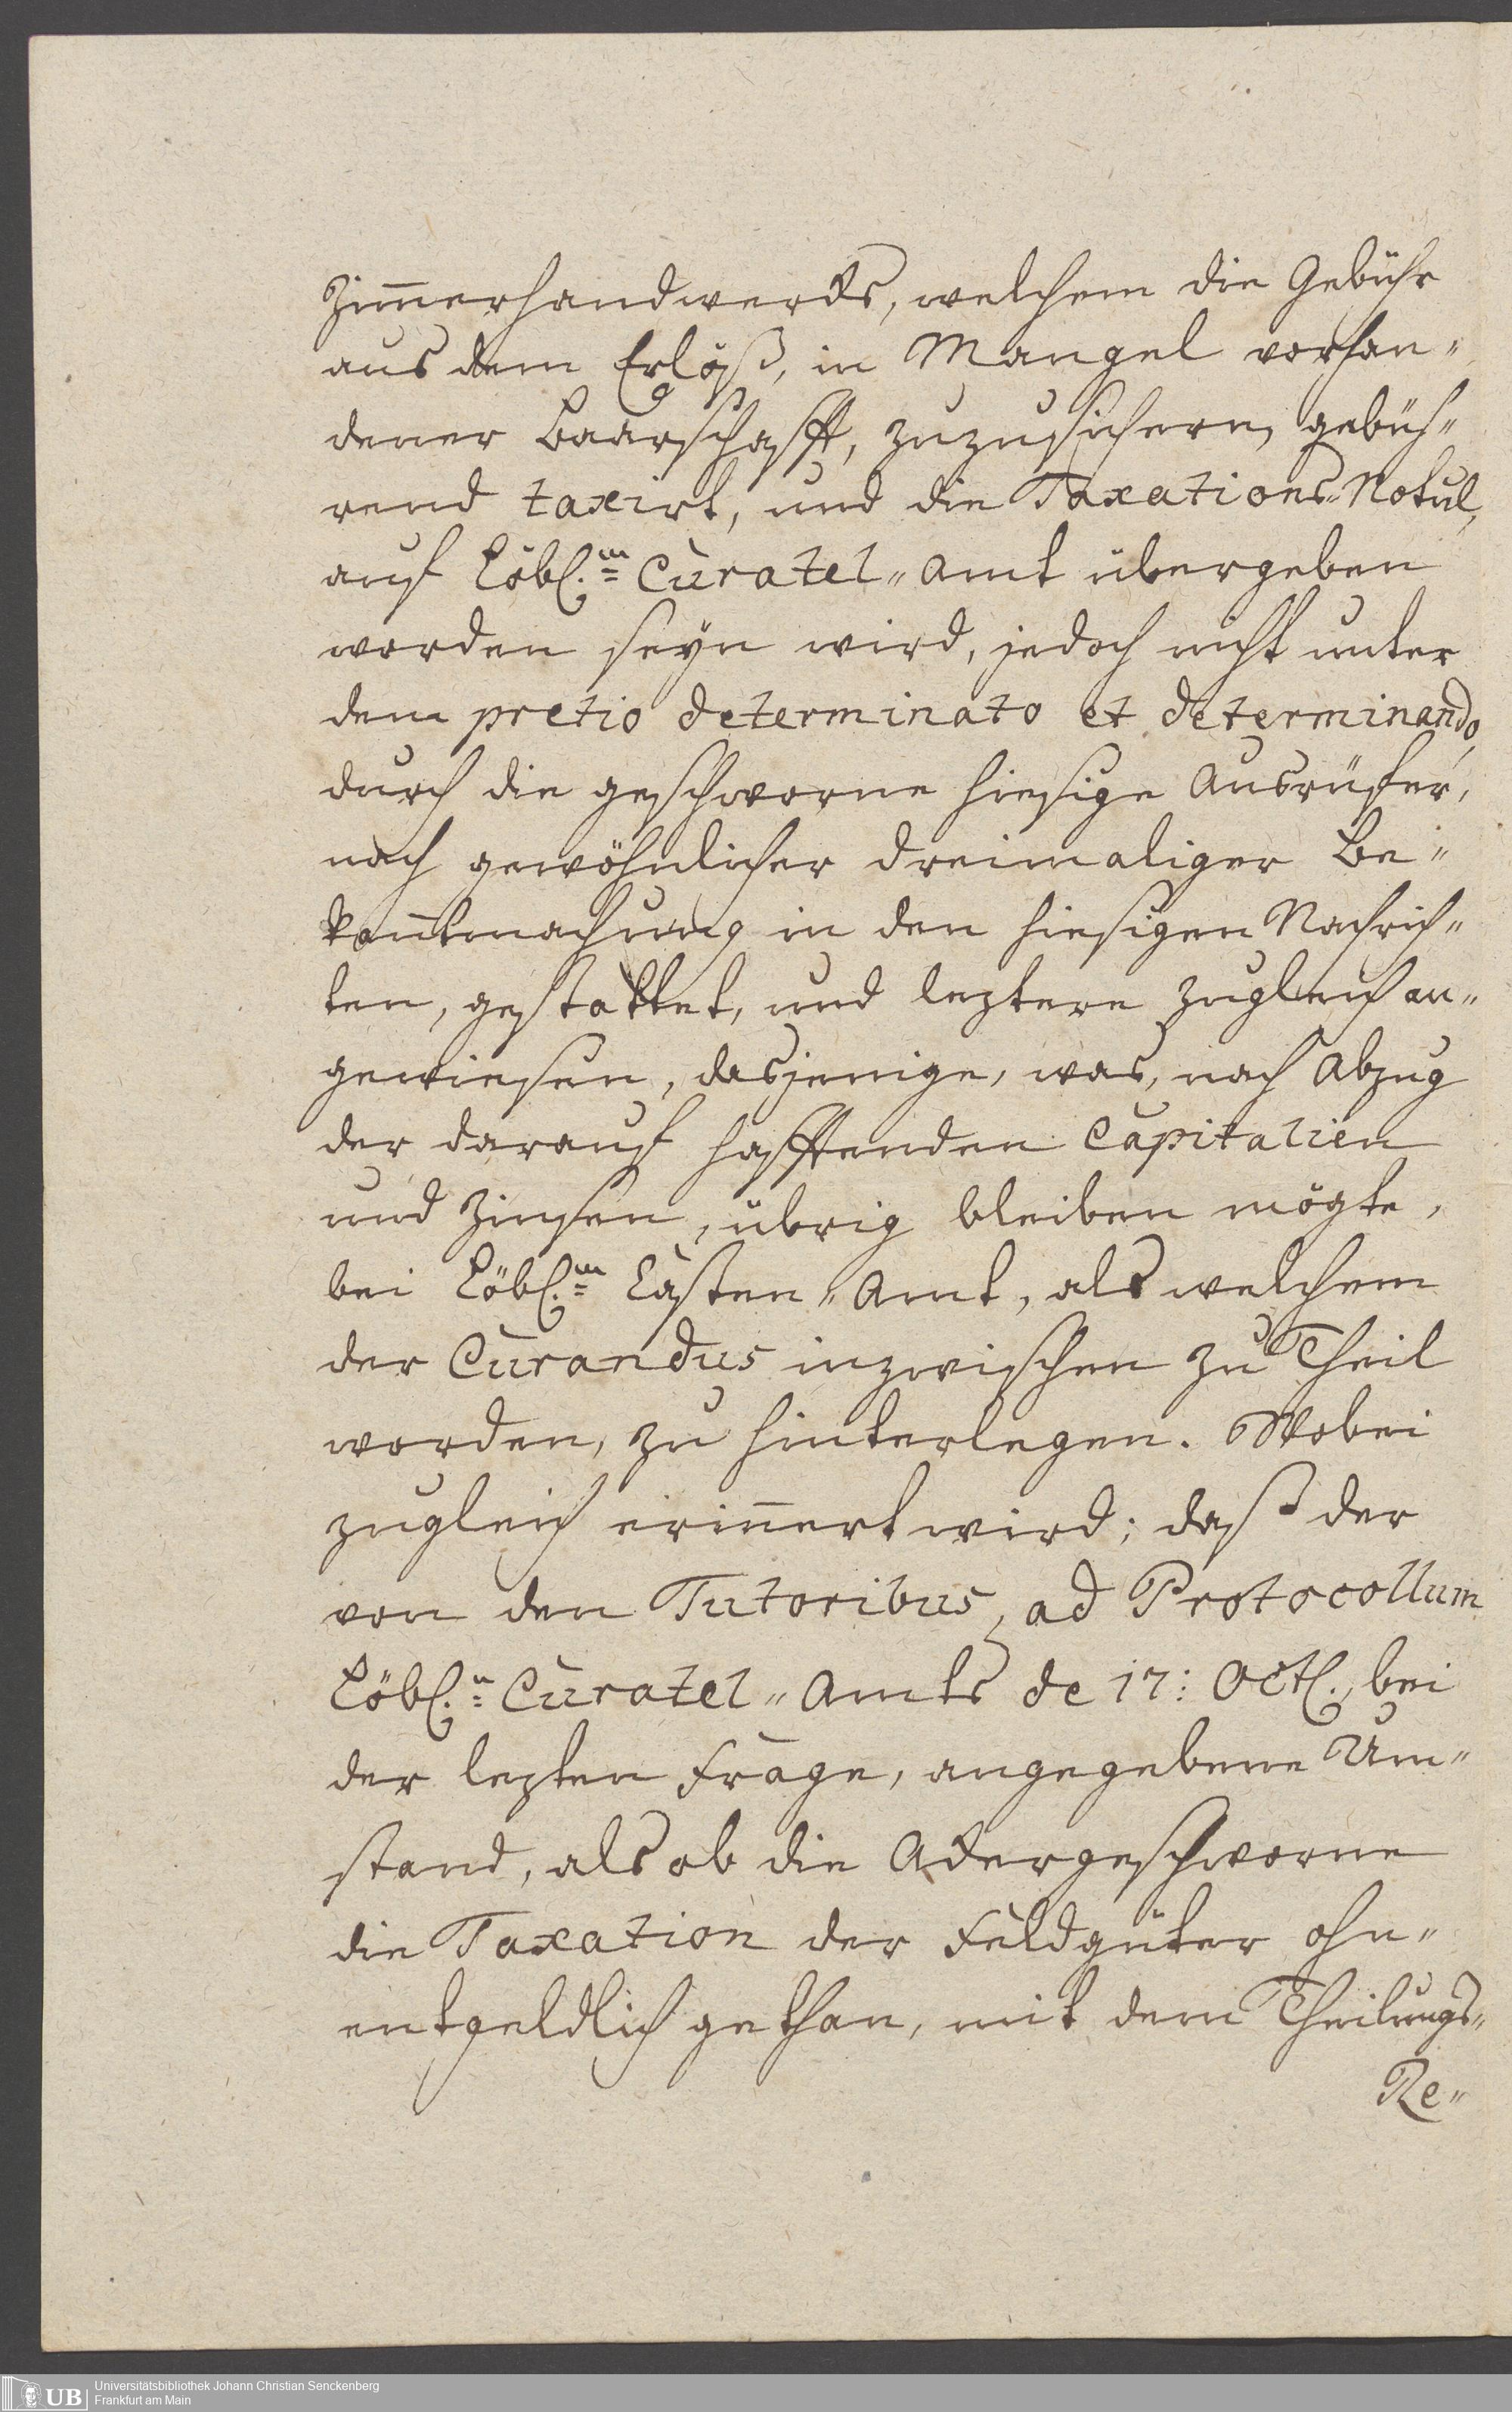 Zim̄erhandwercks, welchem die Gebühr
aus dem Erlöß, in Mangel vorhan„
dener Baarschafft, zuzusichern, gebüh„
rend taxirt, und die Taxations„Notul,
auf Löbl.m Curatel„Amt übergeben
worden seyn wird, jedoch nicht unter
dem pretio determinato et determinando,
durch die geschworne hiesige Ausrüfer,
nach gewöhnlicher dreimaliger Be„
kan̄tmachung in den hiesigen Nachrich„
ten, gestattet, und leztere zugleich an„
gewiesen, dasjenige, was, nach Abzug
der darauf hafftenden Capitalien
und Zinsen, übrig bleiben mögte,
bei Löbl.m Casten„Amt, als welchem
der Curandus inzwischen zu Theil
worden, zu hinterlegen. Wobei
zugleich erin̄ert wird; daß der
von den Tutoribus, ad Protocollum
Löbl.n Curatel„Amts de 17: Octl., bei
der lezten Frage, angegebene Um„
stand, als ob die Ackergeschworne
die Taxation der Feldgüter ohn„
entgeldlich gethan, mit dem Theilungs„
Re„
UB
Universitätsbibliothek Johann Christian Senckenberg
Frankfurt am Main